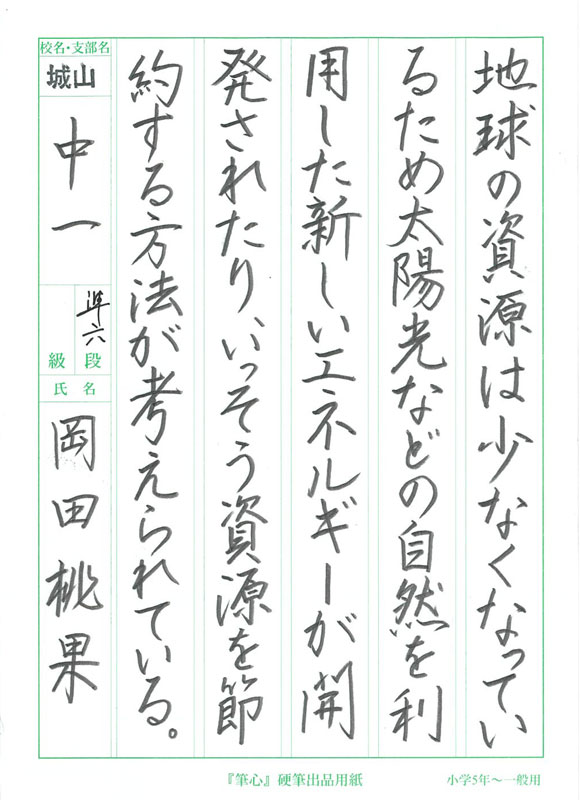 地球の資源は少なくなってい
るため太陽光などの自然を利
用した新しいエネルギーが開
発されたり、いっそう資源を節
約する方法が考えられている。
校名・支部名
城山
中一
準六
段
級
氏名
岡田桃果
『筆心』硬筆出品用紙
小学5年～一般用